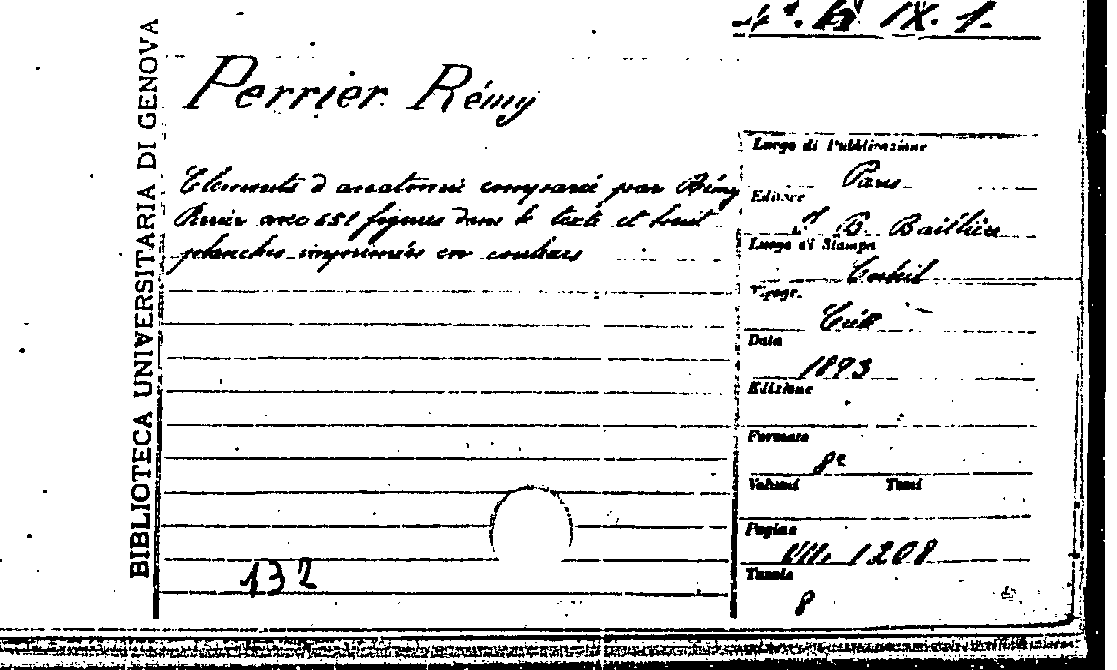 IX. 1.
BIBLIOTECA UNIVERSITARIA DI GENOVA
Perrier Rémy
Elements d'anatomie comparée par Rémy
Perrier avec 651 figures dans le texte et huit
planches imprimées en couleurs
132
Luogo di Pubblicazione
Paris
Editore
B. Baillière
Luogo di Stampa
Corbeil
Tipogr.
Crété
Data
1893
Edizione
Formato
8º
Volumi Tomi
Pagine
VIII, 1208
Tavole
8